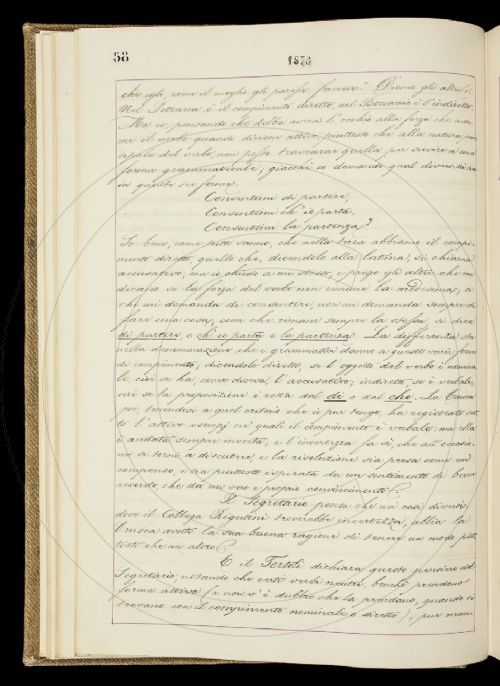 58
1878
che egli, come il meglio gli paresse, facesse." Dicono gli altri:
Nel Petrarca è il compimento diretto, nel Boccaccio è l'indiretto.
Ma io, pensando che debba aversi l'occhio alla forza che assu-
me il verbo quando diviene attivo, piuttosto che alla natura
del verbo, non posso trascurar quella per servire a una
forma grammaticale; giacchè io domando qual diversità sia
in queste tre forme:
Consentimi di partire,
Consentimi ch' io parta,
Consentimi la partenza?
So bene, come tutti sanno, che nella terza abbiamo il compi-
mento diretto, quello che, dicendolo alla latina, si chiama
accusativo, ma io chiedo a me stesso, e prego gli altri che mi
dicano se la forza del verbo non rimane la medesima, a
chi mi domanda di consentire, non mi domanda sempre di
fare una cosa, cosa che rimane sempre la stessa si dica
di partire o ch' io parta o la partenza. La differenza sta
nella denominazione che i grammatici danno a queste varie forme
di compimento, dicendolo diretto, se l' oggetto del verbo è nomina-
le, cioè se ha, come dicevo, l' accusativo; indiretto, se è verbale,
cioè se la proposizione è retta dal di o dal che. La Crusca
poi, tenendosi a quel criterio che io pur tengo, ha registrato sot-
to l' attivo esempi ne' quali il compimento è verbale: ma ella
è andata sempre incerta, e l' incertezza fa sì, che all' occasio-
ne si torni a discutere, e la risoluzione sia presa come un
compenso, e sia piuttosto ispirata da un sentimento di buon
accordo che da un vero e proprio convincimento.
Il Segretario pensa che nei casi diversi,
dove il Collega Rigutini troverebbe incertezza, abbia la
Crusca avuto la sua buona ragione di tenere un modo piut-
tosto che un altro.
E il Tortoli dichiara questo pensiero del
Segretario, notando che certi verbi neutri, benchè prendano
forma attiva (e non v' è dubbio che la prendano, quando si
trovano con il compimento nominale o diretto), pur man-